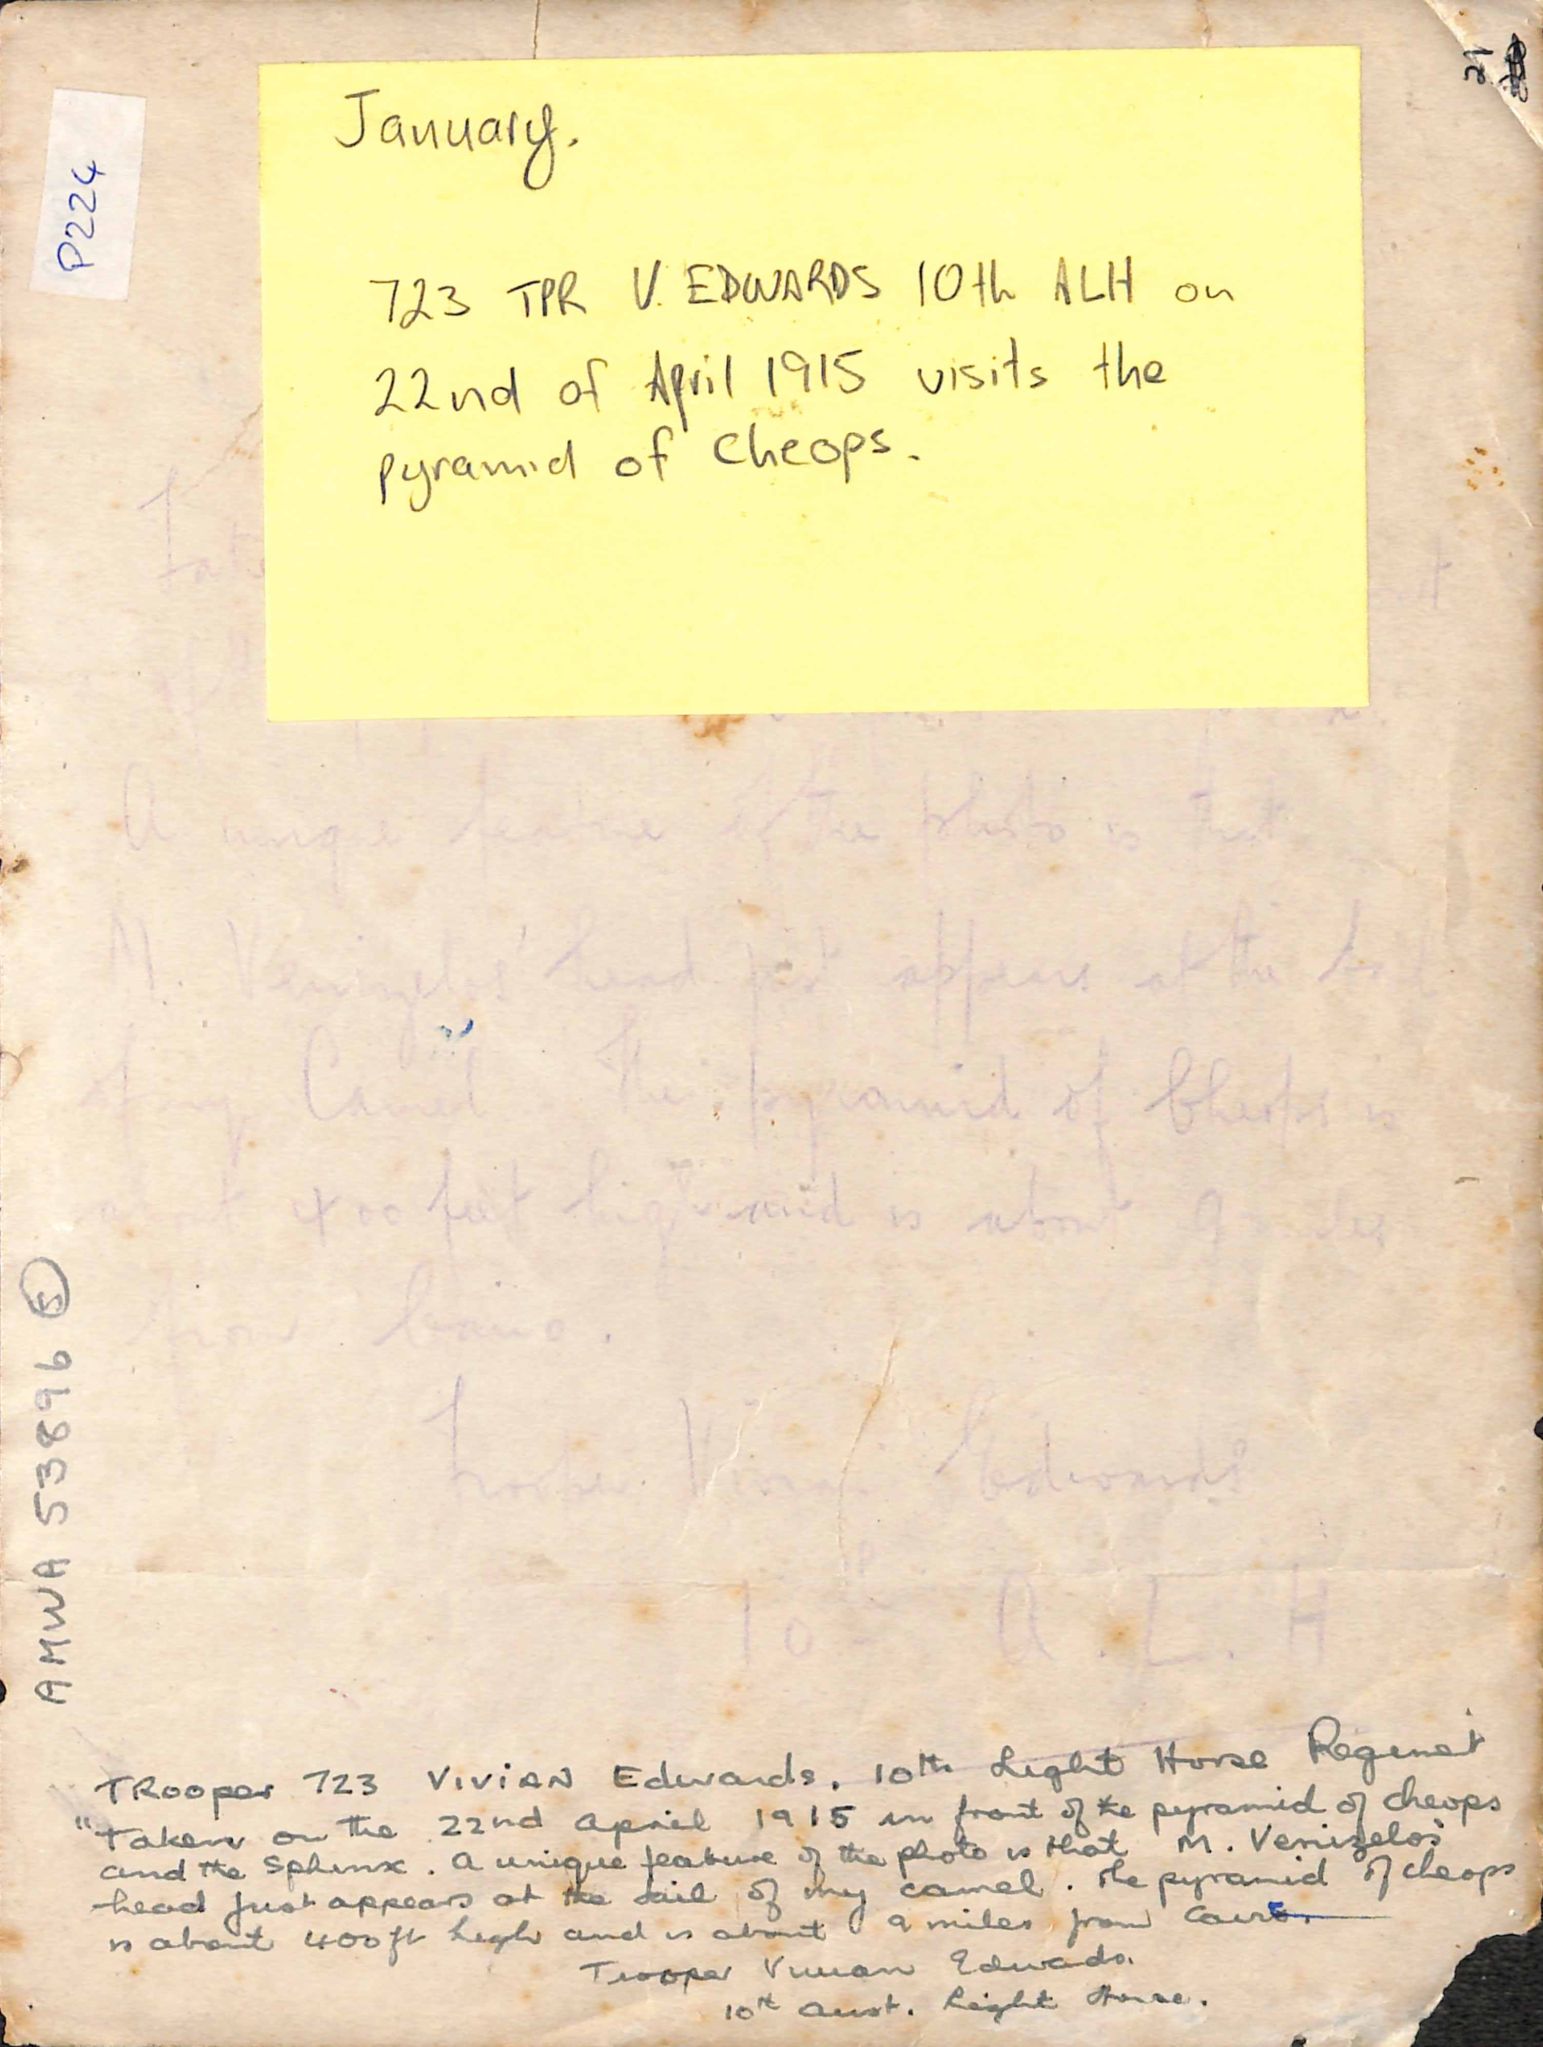 21
P224
January.
723 TPR V. EDWARDS 10th ALH on
22nd of April 1915 visits the
pyramid of Cheops.
A unique feature of the photo is that
M. Venizelos' head just appears at the tail
of my Camel. The pyramid of Cheops is
about 400 feet high and is about 9 miles
from Cairo.
Trooper Vivian Edwards
10th A.L.H
AMWA 53896
TRooper 723 VIVIAN Edwards. 10th Light Horse Regimet
"Taken on the 22nd April 1915 in front of the pyramid of cheops
and the Sphinx. A unique feature of the photo is that M. Venizelos'
head just appears at the tail of my camel. The pyramid of cheops
is about 400ft high and is about 9 miles from Cairo.
Trooper Vivian Edwards.
10th Aust. Light Horse.